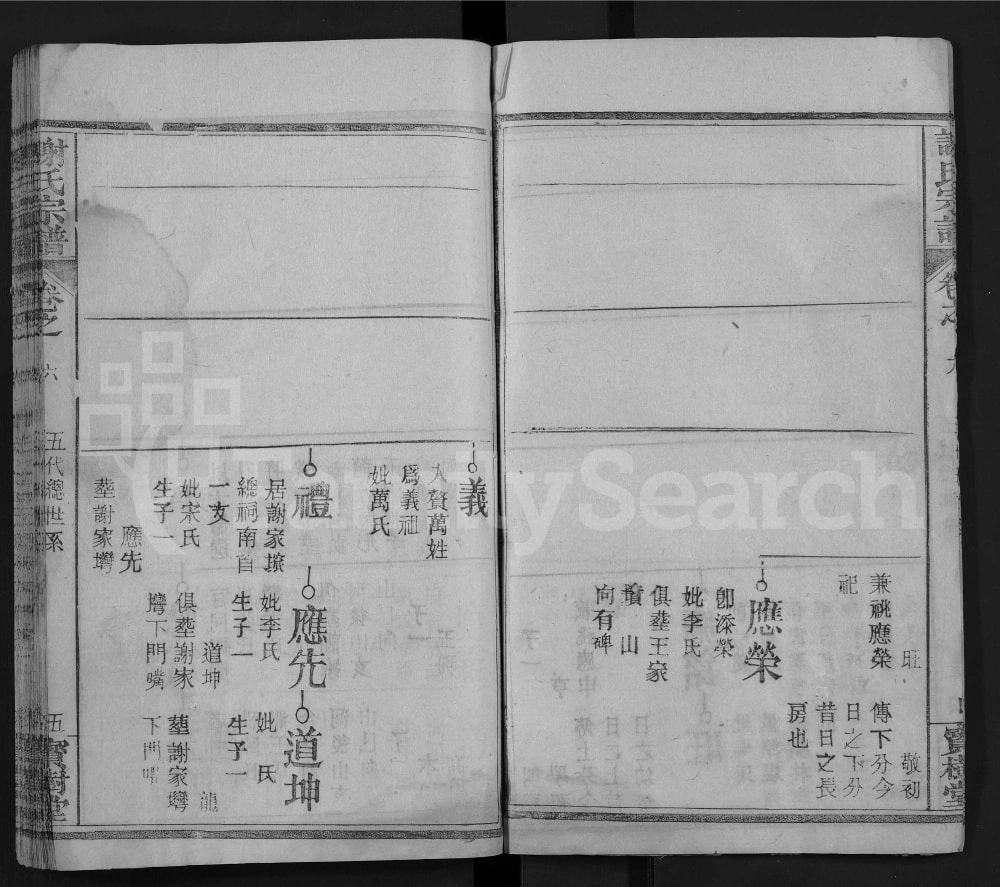 旺
兼祧應榮
祀
敬初
傳下分今
日之下分
昔日之長
房也
應榮
卽添榮
妣李氏
俱塟王家
墳山
向有碑
寶樹堂
義
入贅萬姓
爲義祖
妣萬氏
禮
居謝家墩
總祠南首
一支
妣宋氏
生子一
應先
塟謝家塆
應先
妣李氏
生子一
道坤
俱塟謝家
塆下門嘴
道坤
妣 氏
生子一
龍
塟謝家塆
下門嘴
謝氏宗譜
卷之
六
五代總世系
五
寶樹堂
FamilySearch